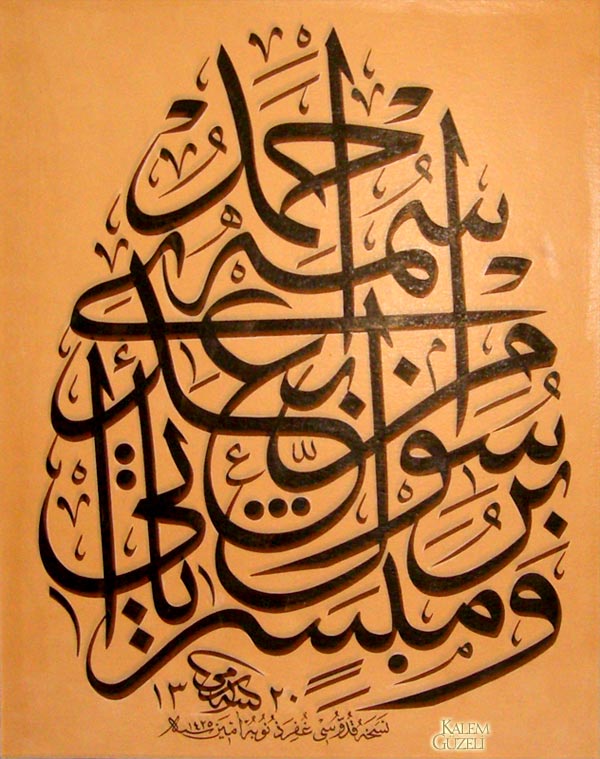 وَمُبَشِّرًا بِرَسُولٍ يَأْتِي مِنْ بَعْدِي اسْمُهُ أَحْمَدُ
١٣٢٠ كتبه سامي
نسخه قدوسى غفر ذنوبه امين ١٤٢٥
KALEM
GÜZELİ